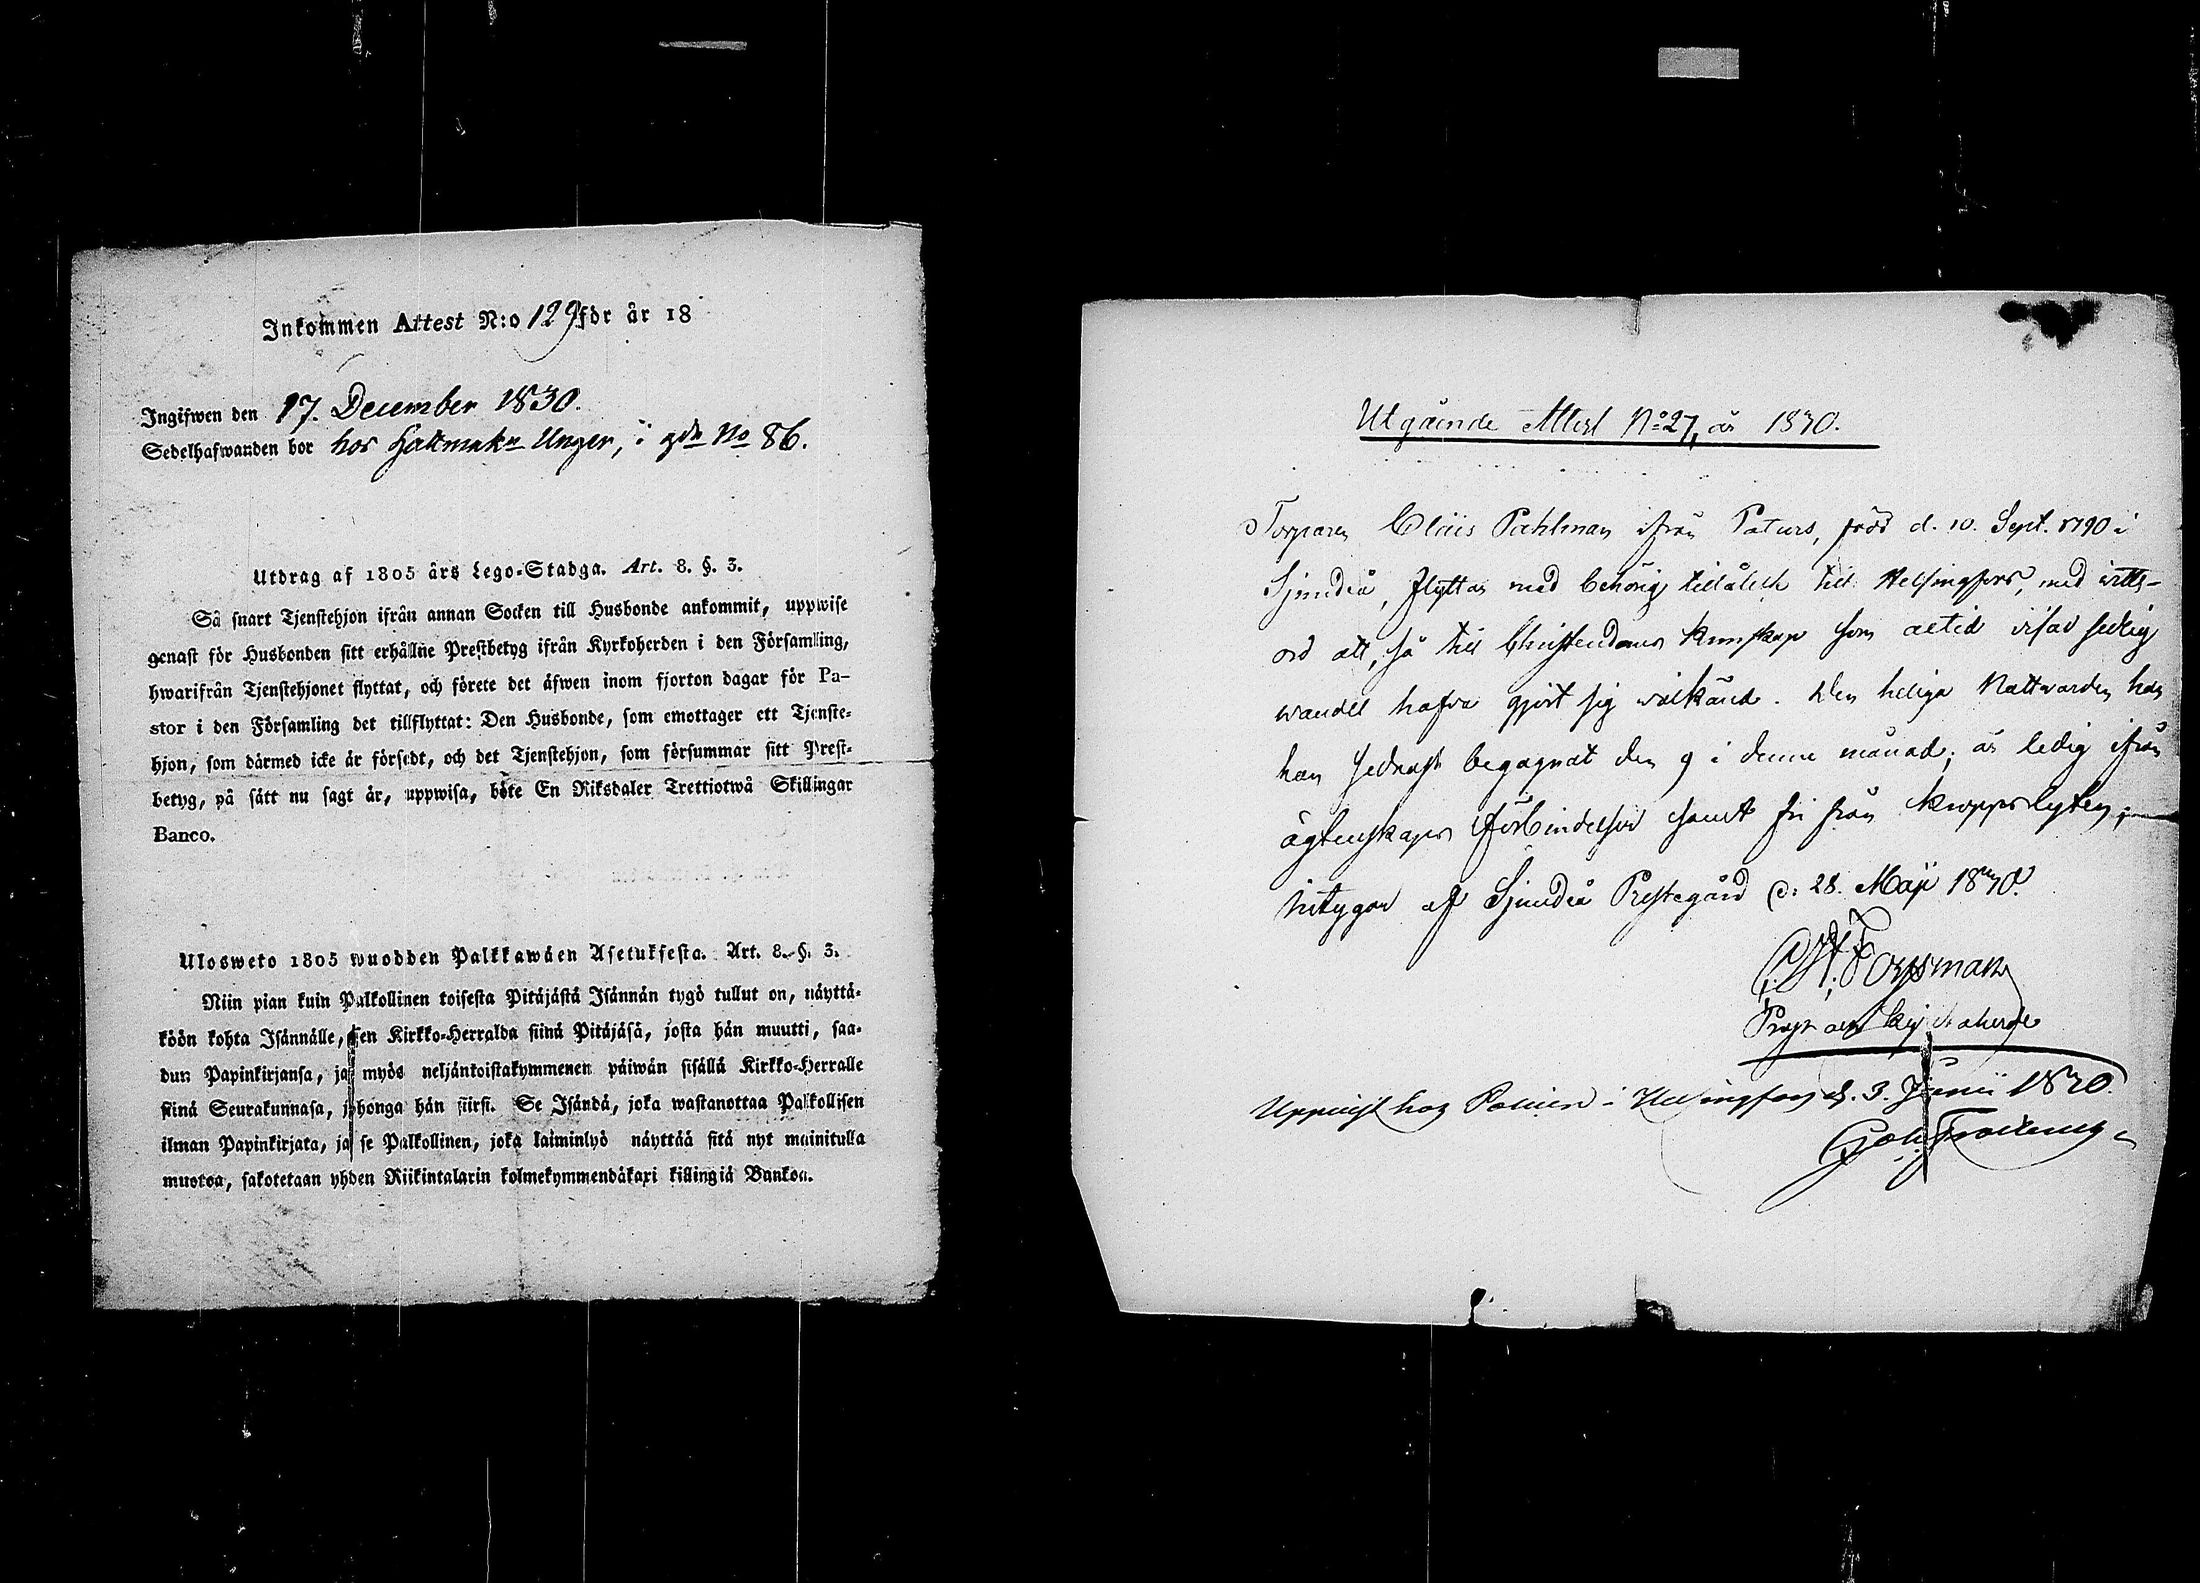 Inkommen Attest N:o 129 för år 18
Ingifwen den 17. December 1830.
Sedelhafwanden bor hos Hattmak:n Unger, i gdn No 86.
Utdrag af 1805 års Lego-Stadga. Art. 8. §. 3.
Så snart Tjenstehjon ifrån annan Socken till Husbonde ankommit, uppwise
genast för Husbonden sitt erhållne Prestbetyg ifrån Kyrkoherden i den Församling,
hwarifrån Tjenstehjonet flyttat, och förete det äfwen inom fjorton dagar för Pa-
stor i den Församling det tillflyttat: Den Husbonde, som emottager ett Tjenste-
hjon, som därmed icke är försedt, och det Tjenstehjon, som försummar sitt Prest-
betyg, på sätt nu sagt är, uppwisa, böte En Riksdaler Trettiotwå Skillingar
Banco.
Ulosweto 1805 wuodden Palkkawäen Asetuksesta. Art. 8. §. 3.
Niin pian kuin Palkollinen toisesta Pitäjästä Isännän tygö tullut on, näyttä-
köön kohta Isännälle, sen Kirkko-Herralda siinä Pitäjäsä, josta hän muutti, saa-
dun Papinkirjansa, ja myös neljäntoistakymmenen päiwän sisällä Kirkko-Herralle
siinä Seurakunnasa, johonga hän siirsi. Se Isändä, joka wastanottaa Palkollisen
ilman Papinkirjata, ja se Palkollinen, joka laiminlyö näyttää sitä nyt mainitulla
muotoa, sakotetaan yhden Riikintalarin kolmekymmendäkaxi killingiä Bankoa.
Utgående Attest No 27, år 1830.
Torparen Claës Pahlman ifrån Paturs, född d. 10. Sept. 1790 i
Sjundeå, flyttar med behörig tillåtelse till Helsingfors, med witts-
ord att, så till Christendoms kunskap som altid wisad sedlig
wandel hafva gjort sig wälkänd. Den heliga Nattwarden har
han sednast begagnat den 9 i denne månad; är ledig ifrån
ägtenskaps förbindelser samt fri från kroppslyten;
intygar af Sjundeå Prestegård d: 28. Maji 1830.
C. H. Forssman
Prost och Kyrkoherde
Uppwist hos Policen i Helsingfors d. 3. Junii 1830.